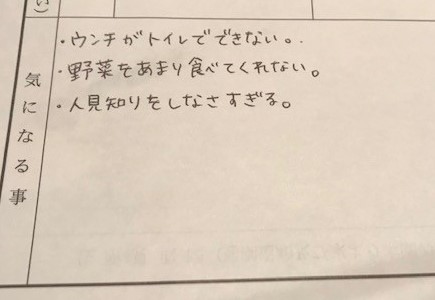 い)
・ウンチがトイレでできない。
・野菜をあまり食べてくれない。
・人見知りをしなさすぎる。
気になる事